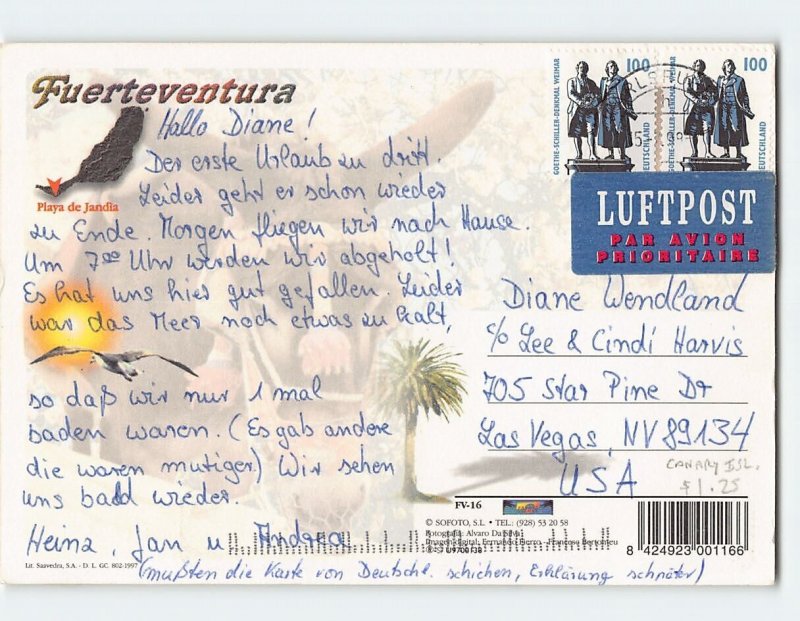 Fuerteventura
Playa de Jandia
Hallo Diane!
Der erste Urlaub zu dritt.
Leider geht er schon wieder
zu Ende. Morgen fliegen wir nach Hause.
Um 7⁰⁰ Uhr werden wir abgeholt!
Es hat uns hier gut gefallen. Leider
war das Meer noch etwas zu kalt,
so daß wir nur 1 mal
baden waren. (Es gab andere
die waren mutiger) Wir sehen
uns bald wieder.
Heinz, Jan u Andrea
(mußten die Karte von Deutschl. schicken, Erklärung später)
Lit. Saavedra, S.A. - D. L. GC. 802-1997
100 100
GOETHE-SCHILLER-DENKMAL WEIMAR
DEUTSCHLAND
GOETHE-SCHILLER-DENKMAL WEIMAR
DEUTSCHLAND
LUFTPOST
PAR AVION
PRIORITAIRE
Diane Wendland
c/o Lee & Cindi Harvis
705 Star Pine Dr
Las Vegas, NV 89134
USA
CANARY ISL.
$1.25
FV-16
© SOFOTO, S.L. • TEL.: (928) 53 20 58
Fotografía: Alvaro Da Silva
Imagen digital: Fernando Fierro
8 424923 001166